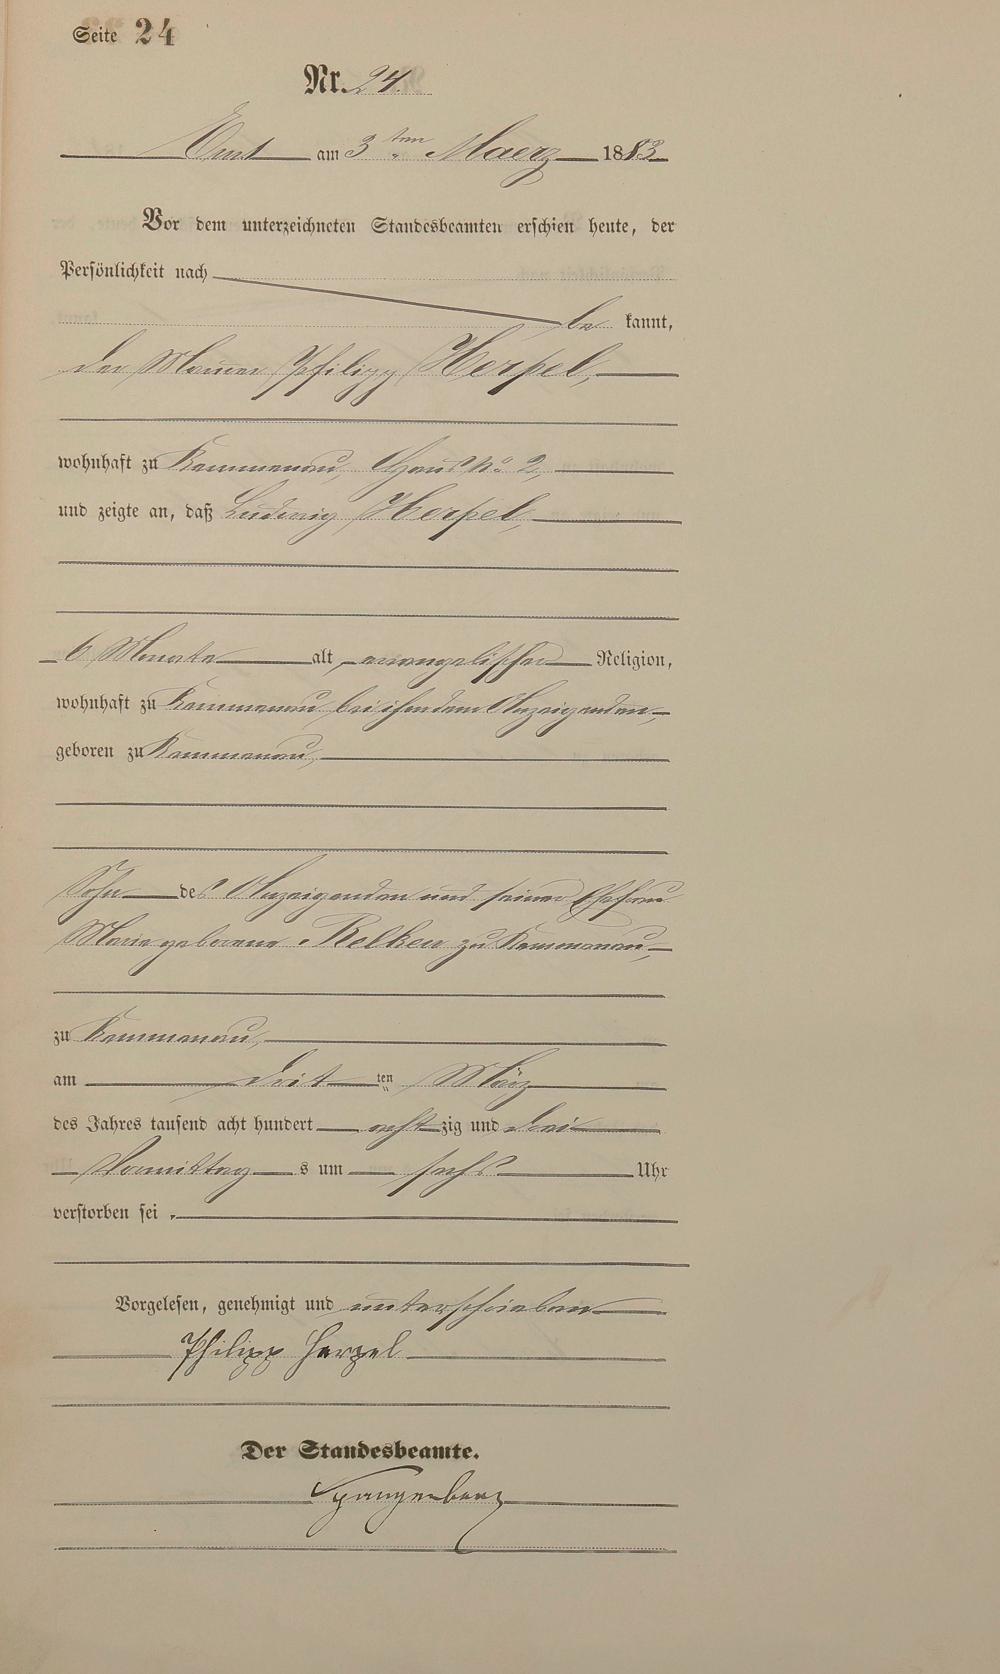 Seite 24
Nr. 24.
Ems am 3ten Maerz 1883.
Vor dem unterzeichneten Standesbeamten erschien heute, der
Persönlichkeit nach
be kannt,
der Maurer Philipp Herpel,
wohnhaft zu Kemmenau, Haus No 2,
und zeigte an, daß Ludwig Herpel,
6 Monate alt, evangelischer Religion,
wohnhaft zu Kemmenau bei ihm dem Anzeigenden,
geboren zu Kemmenau,
Sohn des Anzeigenden und seiner Ehefrau
Marie geborene Relken zu Kemmenau,
zu Kemmenau,
am dritten März
des Jahres tausend acht hundert achtzig und drei
Vormittags um sechs Uhr
verstorben sei.
Vorgelesen, genehmigt und unterschrieben
Philipp Herpel
Der Standesbeamte.
Spangenberg